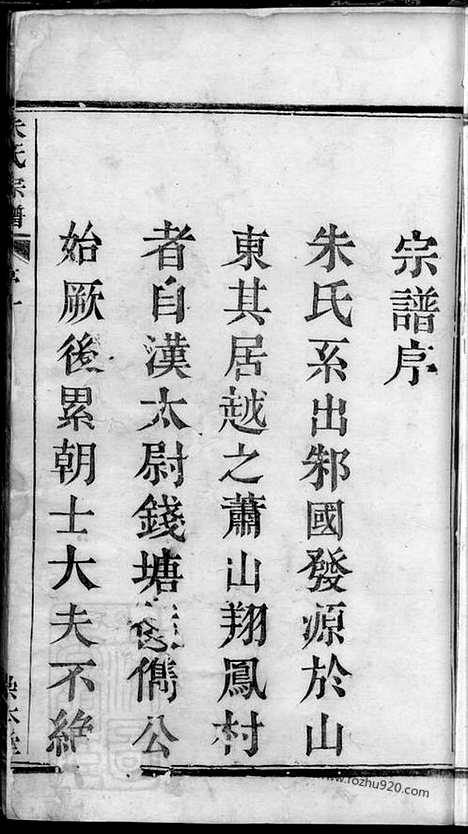 宗譜序
朱氏系出邾國發源於山
東其居越之蕭山翔鳳村
者自漢太尉錢塘侯儁公
始厥後累朝士大夫不絶
朱氏宗譜
序
一
www.rozhu920.com